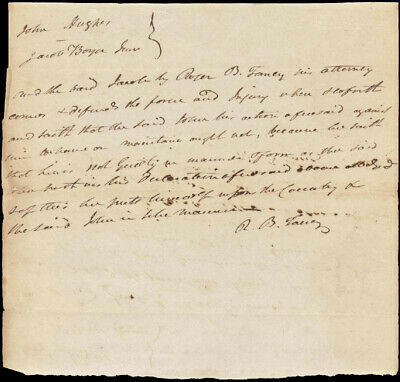 John Hughes
Jacob Boyer Junr
And the said Jacob by Roger B. Taney his attorney
comes & defends the force and Injury when &c
and saith that the said John his action aforesaid against
him to have or maintain ought not, because he saith
that he is not Guilty in manner & form as the said
John hath in his Declaration aforesaid above alledged
& of this he puts himself upon the Country &
the said John in like manner
R. B. Taney